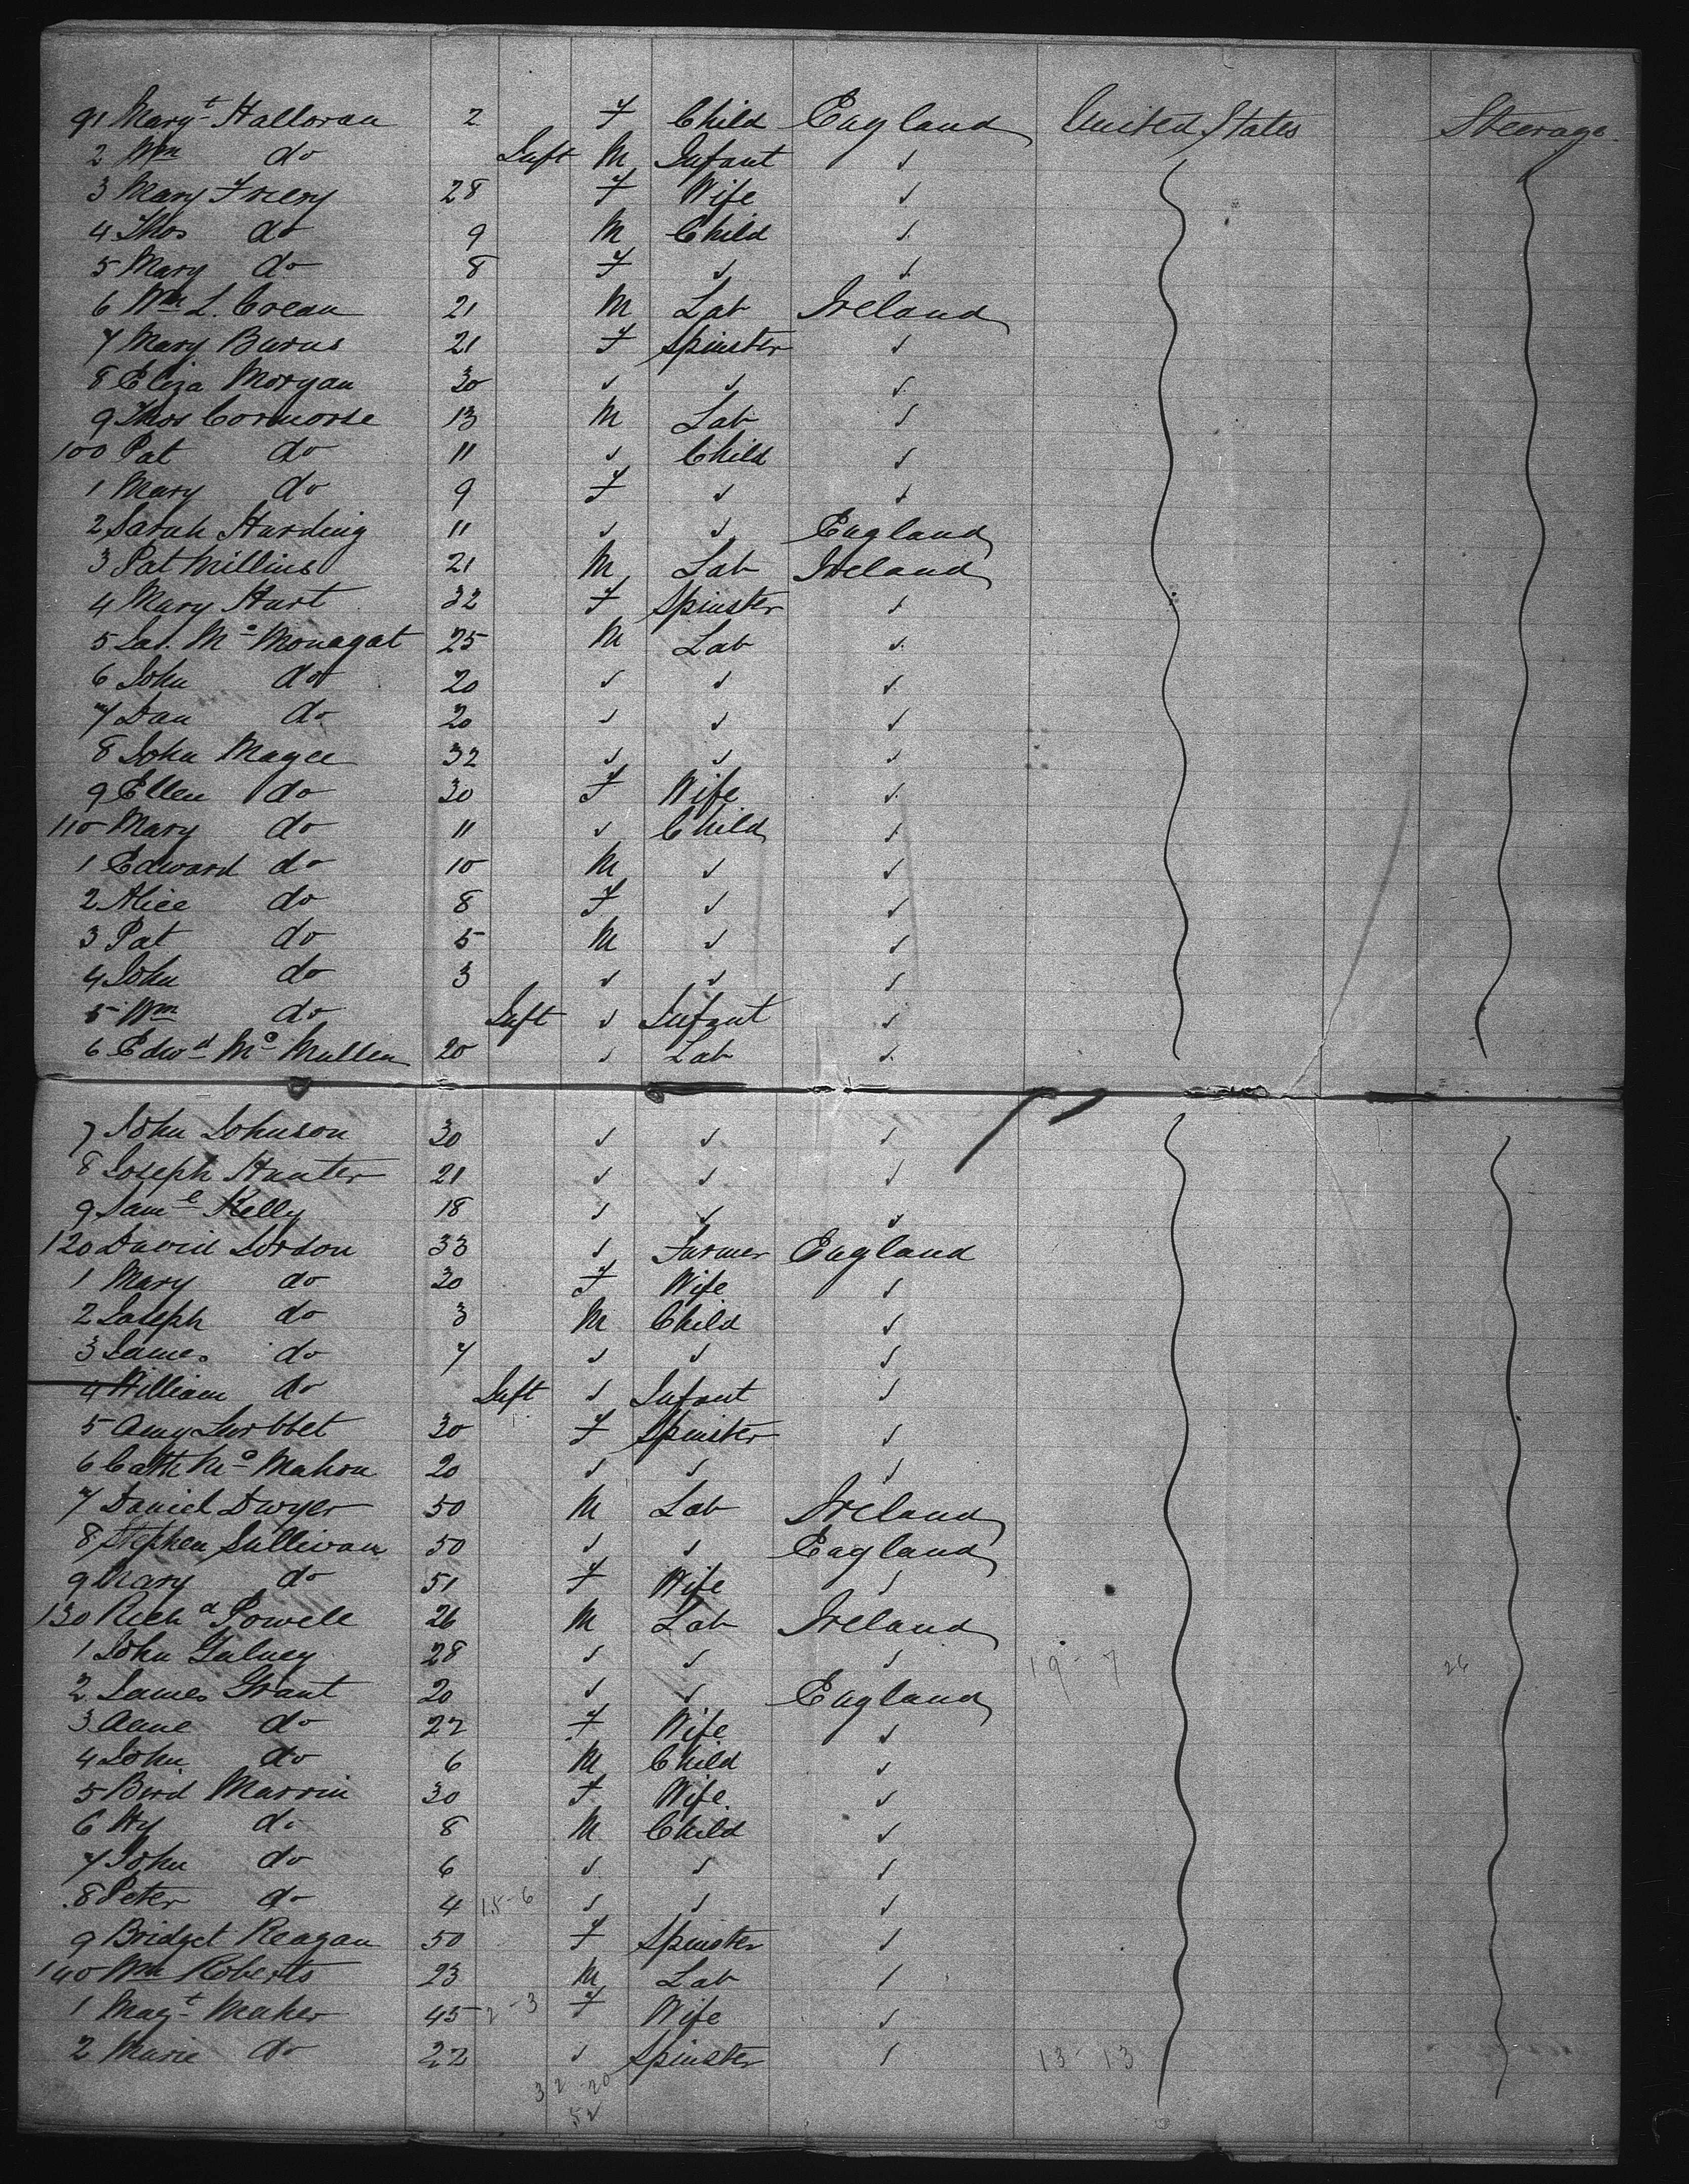 91 Mary t Halloran 2 F Child England United States Steerage
2 Wm do Inft M Infant ✓
3 Mary Friery 28 F Wife ✓
4 Thos do 9 M Child ✓
5 Mary do 8 F ✓ ✓
6 Wm L. Crean 21 M Lab Ireland
7 Mary Burns 21 F Spinster ✓
8 Eliza Morgan 30 ✓ ✓ ✓
9 Thos Cormorse 13 M Lab ✓
100 Pat do 11 ✓ Child ✓
1 Mary do 9 F ✓ ✓
2 Sarah Harding 11 ✓ ✓ England
3 Pat Millins 21 M Lab Ireland
4 Mary Hart 32 F Spinster ✓
5 Jas. Mc Monagat 25 M Lab ✓
6 John do 20 ✓ ✓ ✓
7 Dan do 20 ✓ ✓ ✓
8 John Magee 32 ✓ ✓ ✓
9 Ellen do 30 F Wife ✓
110 Mary do 11 ✓ Child ✓
1 Edward do 10 M ✓ ✓
2 Alice do 8 F ✓ ✓
3 Pat do 5 M ✓ ✓
4 John do 3 ✓ ✓ ✓
5 Wm do Inft ✓ Infant ✓
6 Edwd Mc Mullen 20 ✓ Lab ✓
7 John Johnson 30 ✓ ✓ ✓
8 Joseph Hunter 21 ✓ ✓ ✓
9 Saml Kelly 18 ✓ ✓ ✓
120 David Lordon 33 ✓ Farmer England
1 Mary do 30 F Wife ✓
2 Joseph do 3 M Child ✓
3 James do 7 ✓ ✓ ✓
4 William do Inft ✓ Infant ✓
5 Amy 30 F Spinster ✓
6 Cath Mc Mahon 20 ✓ ✓ ✓
7 Daniel Dwyer 50 M Lab Ireland
8 Stephen Sullivan 50 ✓ ✓ England
9 Mary do 51 F Wife ✓
130 Richd Powell 26 M Lab Ireland
1 John Galney 28 ✓ ✓ ✓ 19-7 26
2 James Grant 20 ✓ ✓ England
3 Anne do 22 F Wife ✓
4 John do 6 M Child ✓
5 Bird Marrin 30 F Wife ✓
6 Hy do 8 M Child ✓
7 John do 6 ✓ ✓ ✓
8 Peter do 4 15-6 ✓ ✓ ✓
9 Bridget Reagan 50 F Spinster ✓
140 Wm Roberts 23 M Lab ✓
1 Magt Maher 45 2-3 F Wife ✓
2 Marie do 22 ✓ Spinster ✓ 13-13
32-20
52